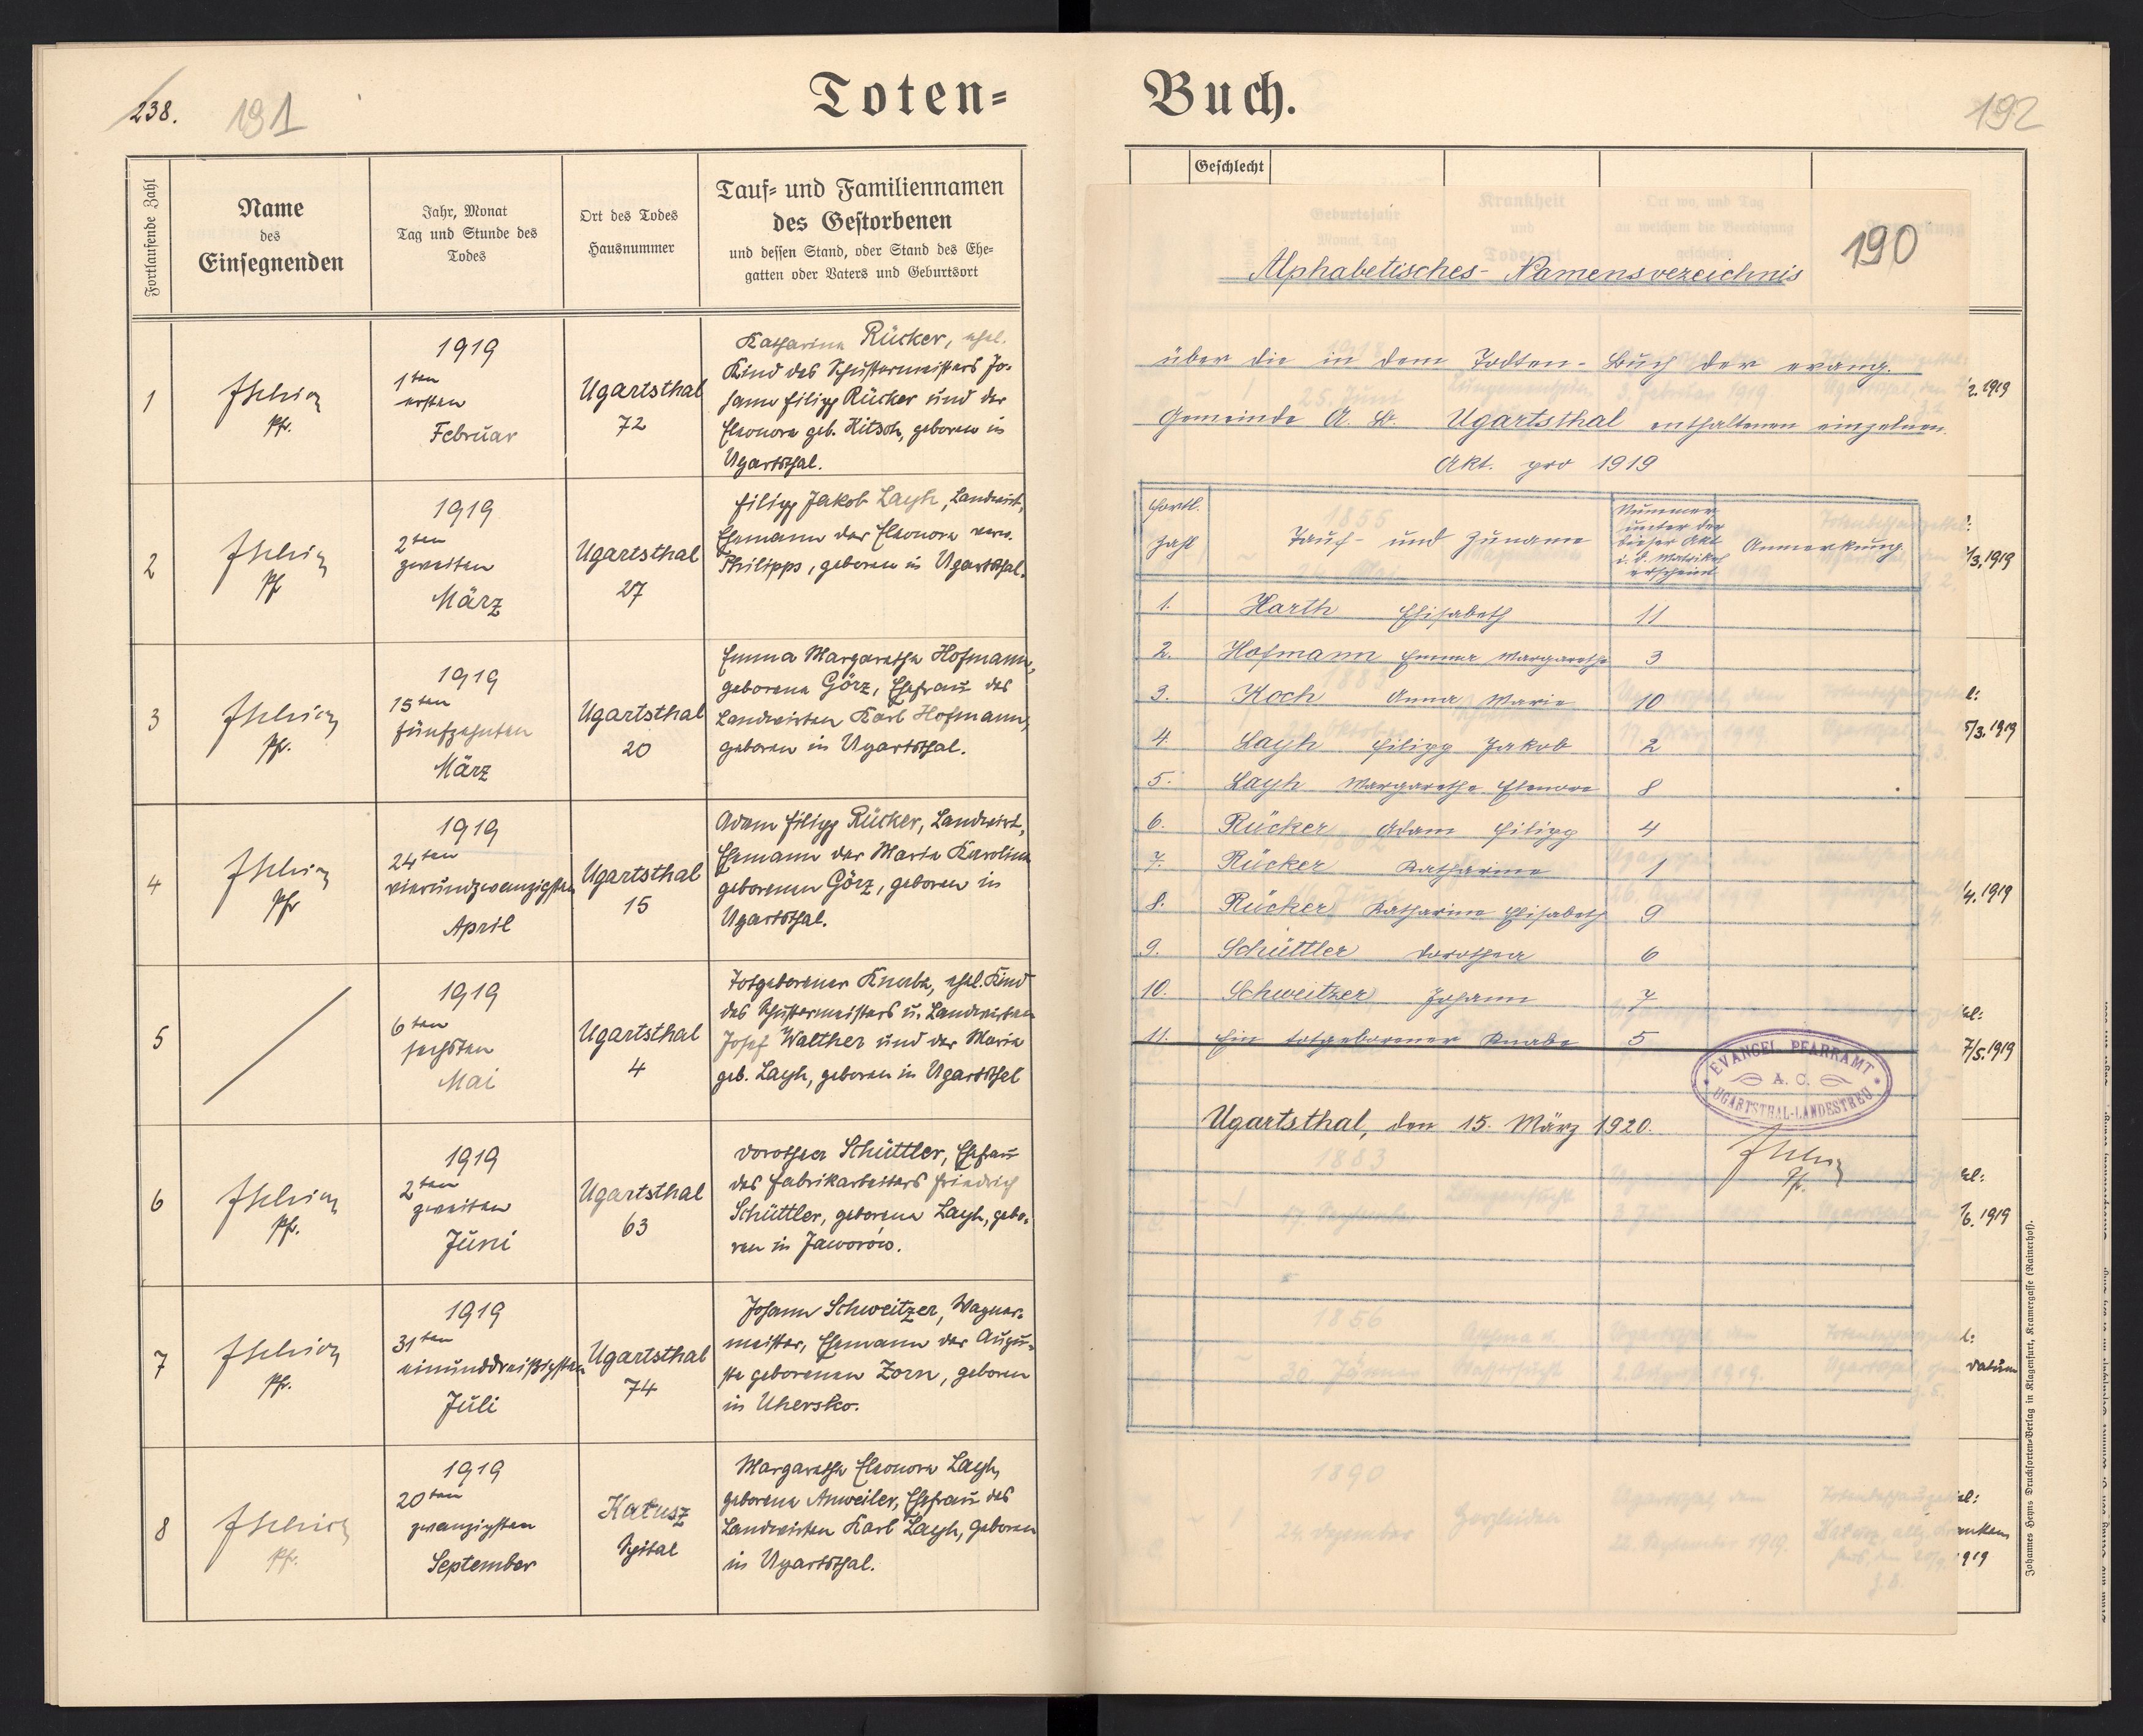 238.
191
Toten=
Fortlaufende Zahl
Name
des
Einsegnenden
Jahr, Monat
Tag und Stunde des
Todes
Ort des Todes
Hausnummer
Tauf= und Familiennamen
des Gestorbenen
und dessen Stand, oder Stand des Ehe=
gatten oder Vaters und Geburtsort
1
Pfr.
1919
1ten
ersten
Februar
Ugartsthal
72
Katharina Rücker, ehel.
Kind des Schustermeisters Jo-
hann Filipp Rücker und der
Eleonore geb. Kitsch, geboren in
Ugartsthal.
2
Pfr
1919
2ten
zweiten
März
Ugartsthal
27
Filipp Jakob Layh, Landwirt,
Ehemann der Eleonore verw.
Philipps, geboren in Ugartsthal.
3
Pfr.
1919
15ten
fünfzehnten
März
Ugartsthal
20
Emma Margaretha Hofmann,
geborene Görz, Ehefrau des
Landwirten Karl Hofmann,
geboren in Ugartsthal.
4
Pfr
1919
24ten
vierundzwanzigsten
April
Ugartsthal
15
Adam Filipp Rücker, Landwirt,
Ehemann der Maria Karolina
geborenen Görz, geboren in
Ugartsthal.
5
1919
6ten
sechsten
Mai
Ugartsthal
4
Totgeborener Knabe, ehel. Kind
des Schustermeisters u. Landwirten
Josef Walther und der Maria
geb. Layh, geboren in Ugartsthal
6
Pfr.
1919
2ten
zweiten
Juni
Ugartsthal
63
Dorothea Schüttler, Ehefrau
des Fabrikarbeiters Friedrich
Schüttler, geborene Layh, gebo-
ren in Jaworow.
7
Pfr.
1919
31ten
einunddreißigsten
Juli
Ugartsthal
74
Johann Schweitzer, Wagner-
meister, Ehemann der Augu-
ste geborenen Zorn, geboren
in Uhersko.
8
Pfr.
1919
20ten
zwanzigsten
September
Kalusz
Spital
Margaretha Eleonora Layh,
geborene Anweiler, Ehefrau des
Landwirten Karl Layh, geboren
in Ugartsthal.
Buch.
192
Geschlecht
190
Alphabetisches- Namensverzeichnis
über die in dem Todten- Buch der evang.
Gemeinde A. B. Ugartsthal enthaltenen einzelnen
Akt. pro 1919
Fortl.
Zahl
Tauf- und Zuname
Nummer
unter der
dieser Akt
i. d. Matrikel
erscheint
Anmerkung.
1. Harth Elisabeth 11
2. Hofmann Emma Margaretha 3
3. Koch Anna Maria 10
4. Layh Filipp Jakob 2
5. Layh Margaretha Elenore 8
6. Rücker Adam Filipp 4
7. Rücker Katharina 1
8. Rücker Katharina Elisabeth 9
9. Schüttler Dorothea 6
10. Schweitzer Johann 7
11. Ein totgeborener Knabe 5
EVANGEL. PFARRAMT
A. C.
UGARTSTHAL-LANDESTREU
Ugartsthal, den 15. März 1920.
Pfr.
/2.1919
/3.1919
5/3.1919
/4.1919
7/5.1919
/6.1919
Datum
1919
Johannes Heyns Drucksorten-Verlag in Klagenfurt, Kramergasse (Rainerhof).